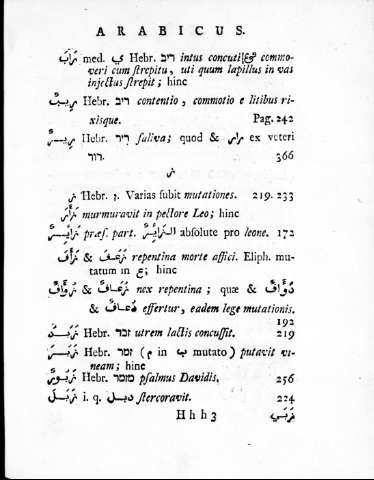 ARABICUS.
med. ي Hebr. ריב intus concuti & commo-
veri cum strepitu, uti quum lapillus in vas
injectus strepit; hinc
Hebr. ריב contentio, commotio e litibus ri-
xisque. Pag. 242
Hebr. ריר saliva; quod & ex veteri
רור. 366
ز
ز Hebr. ז. Varias subit mutationes. 219. 233
murmuravit in pectore Leo; hinc
præs. part. absolute pro leone. 172
& repentina morte affici. Eliph. mu-
tatum in ع; hinc
& nex repentina; quæ &
& effertur, eadem lege mutationis.
192
Hebr. זבד utrem lactis concussit. 219
Hebr. זמר (م in ب mutato) putavit vi-
neam; hinc
Hebr. מזמר psalmus Davidis. 256
i. q. دبل stercoravit. 224
Hhh3